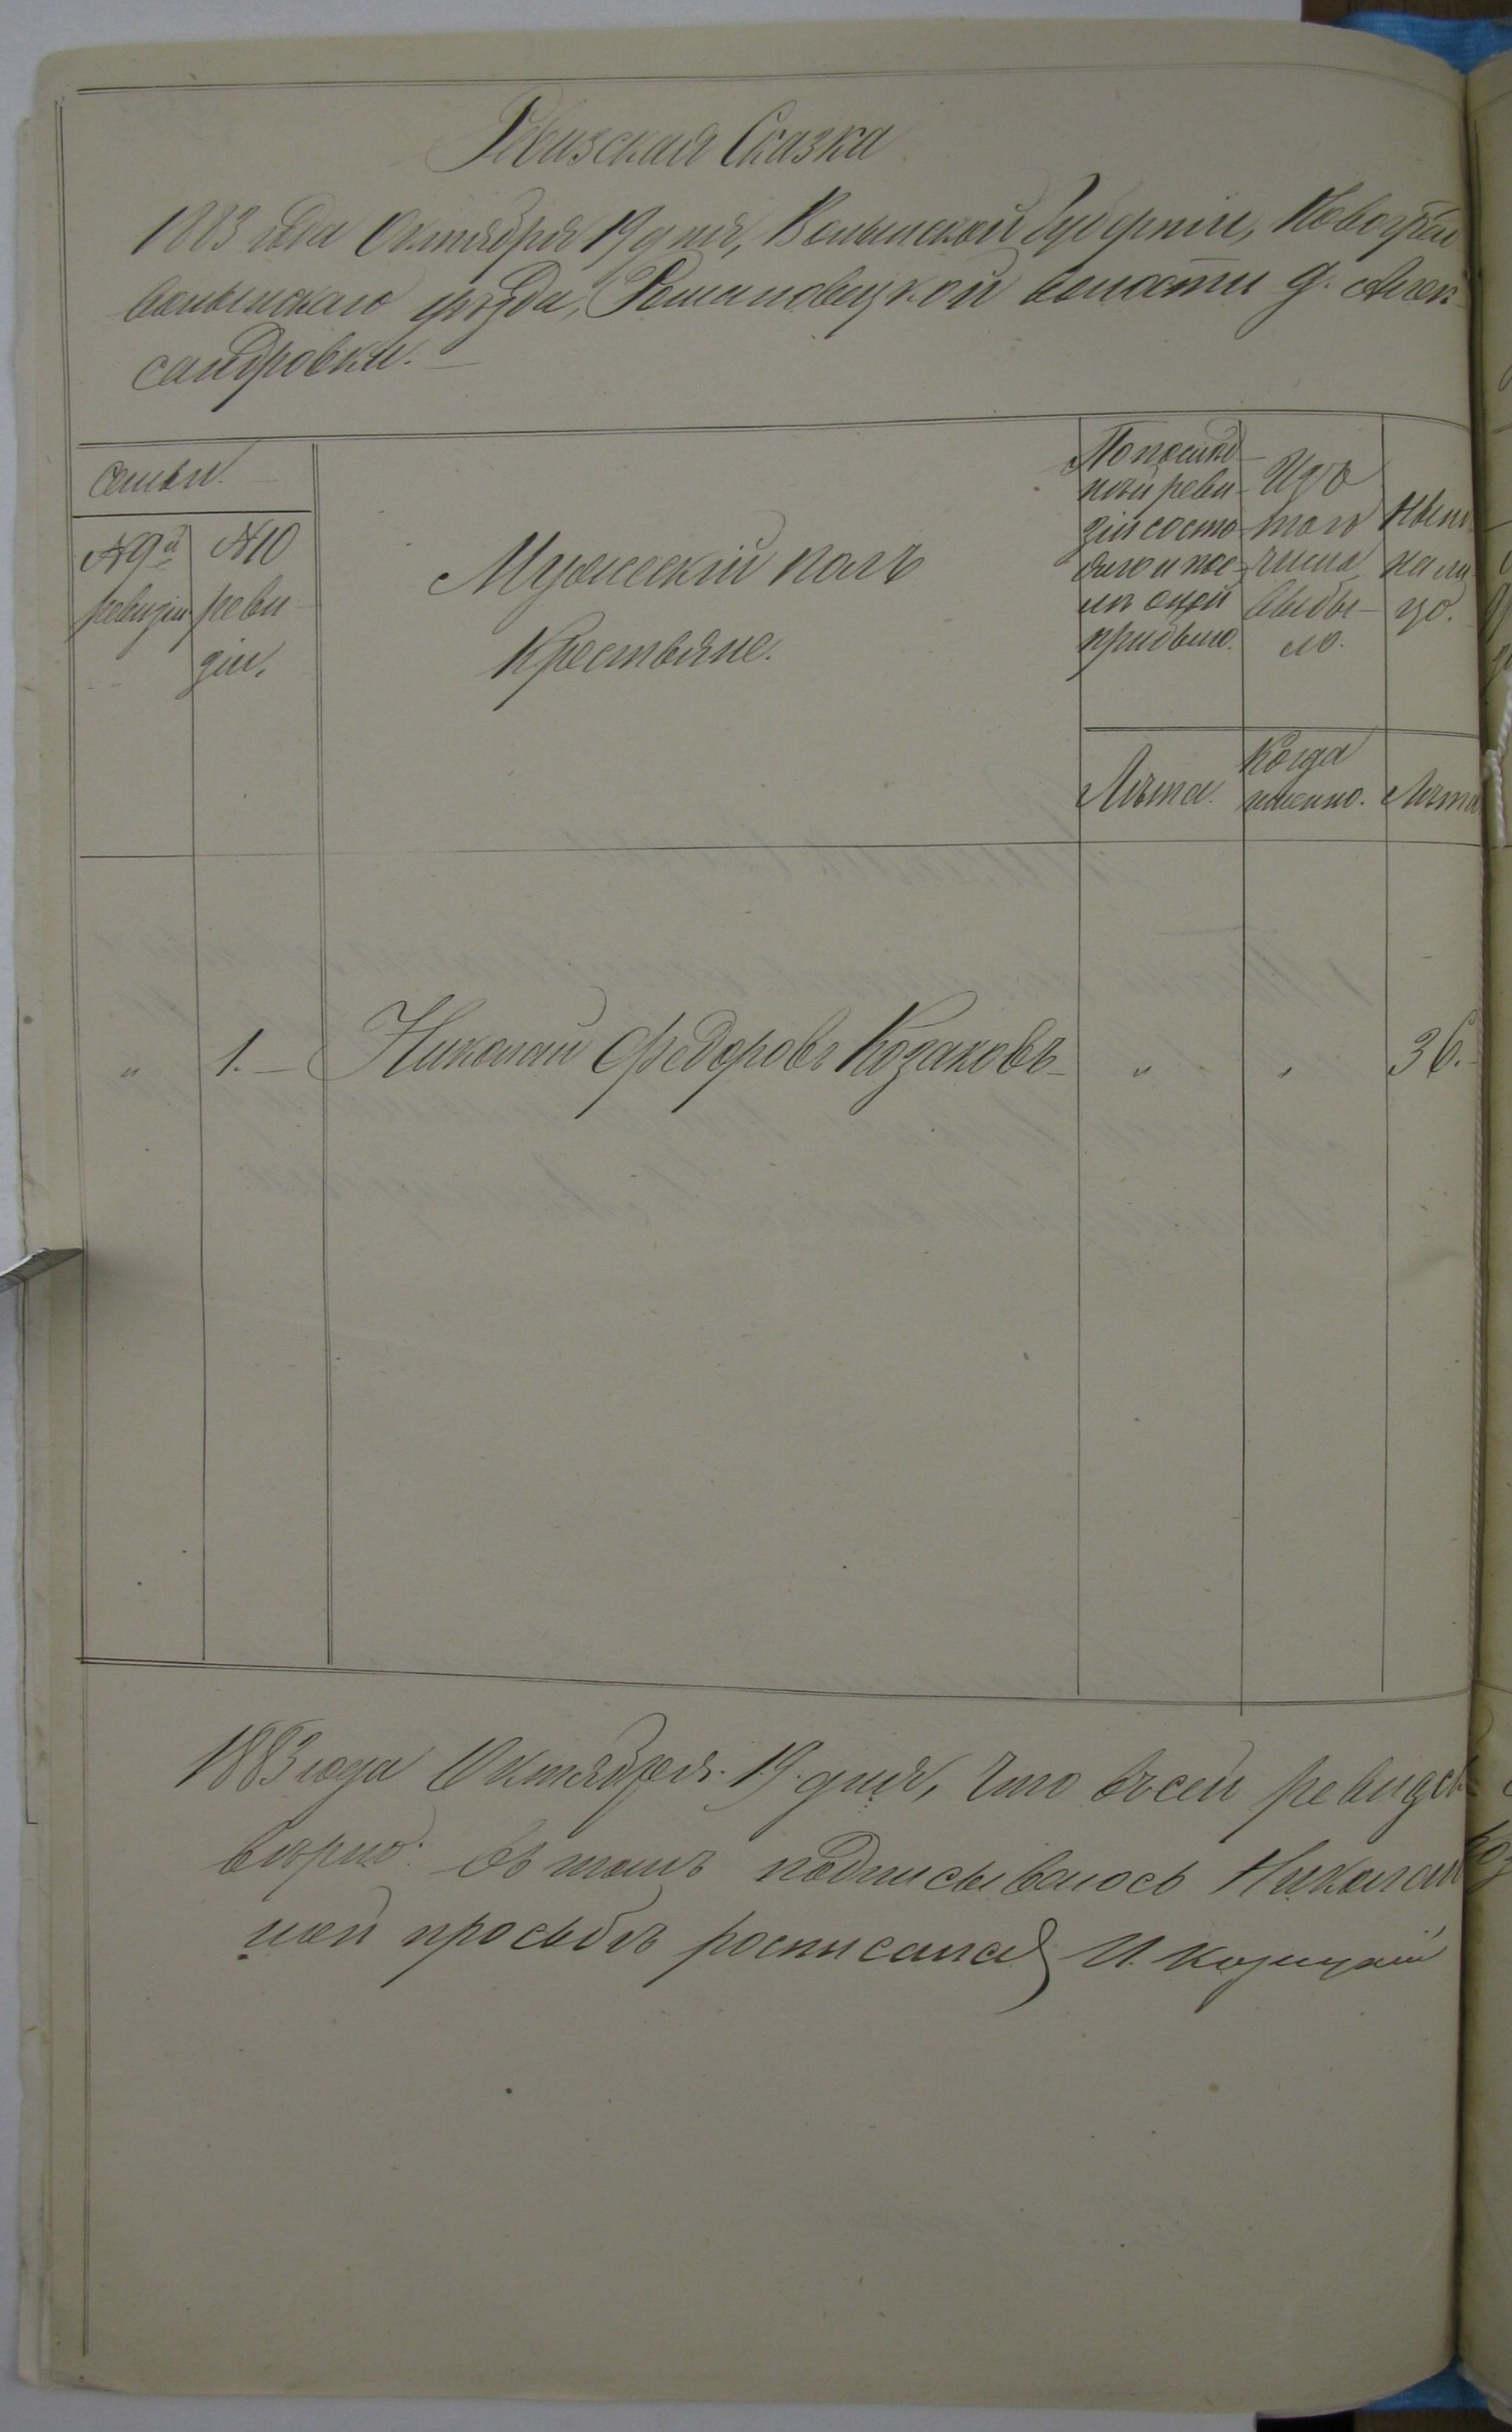 Ревизская Сказка
1883 года Октября 19 дня, Волынской Губерніи, Новоград
волынскаго уѣзда, волости д. Алек
сандровки.
Семьи.
№ 9й ревизіи
№ 10 реви
зіи.
Мужескій полъ
Крестьяне.
По послѣд
ней реви
зіи состо
яло и пос
лѣ оной
прибыло.
Изъ
того
числа
выбы
ло.
Нынѣ
на ли
цо.
Лѣта.
Когда
именно.
Лѣта
„ 1. Николай Федоровъ Козаковъ „ „ 36.
1883 года Октября 19 дня, что въ сей ревизск
вѣрно. въ томъ подписываюсь Николай
ной просьбѣ росписался И. Козицкій